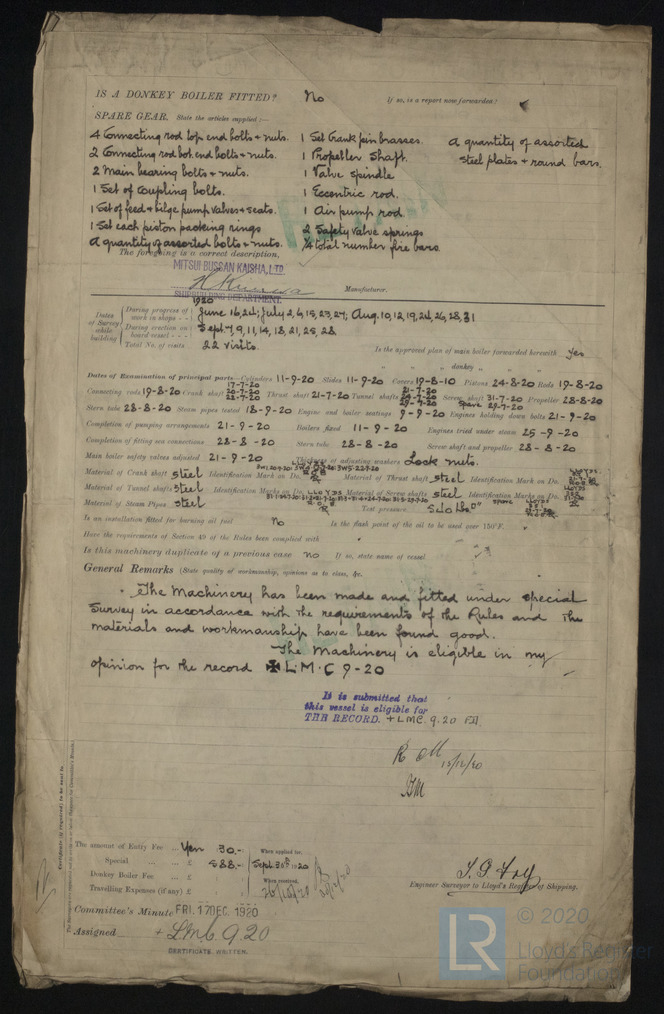 IS A DONKEY BOILER FITTED? No If so, is a report now forwarded?
SPARE GEAR. State the articles supplied:—
4 Connecting rod top end bolts + nuts. 1 Set Crank pin brasses. A quantity of assorted
2 Connecting rod bot. end bolts + nuts. 1 Propeller Shaft. steel plates + round bars.
2 Main bearing bolts + nuts. 1 Valve spindle
1 Set of coupling bolts. 1 Eccentric rod.
1 Set of feed + bilge pump valves + seats. 1 Air pump rod
1 Set each piston packing rings 2 Safety valve springs
A quantity of assorted bolts + nuts. ¼ total number fire bars.
The foregoing is a correct description,
MITSUI BUSSAN KAISHA, LTD
Manufacturer.
SHIPBUILDING DEPARTMENT.
1920
Dates of Survey while building
During progress of work in shops - - June 16, 24; July 2, 6, 15, 23, 27; Aug. 10, 12, 19, 24, 26, 28, 31
During erection on board vessel - - - Sept. 7, 9, 11, 14, 18, 21, 25, 28
Total No. of visits 22 visits.
Is the approved plan of main boiler forwarded herewith Yes
" " " donkey " "
Dates of Examination of principal parts—Cylinders 11-9-20 Slides 11-9-20 Covers 19-8-10 Pistons 24-8-20 Rods 19-8-20
Connecting rods 19-8-20 Crank shaft 17-7-20 20-7-20 22-7-20 Thrust shaft 21-7-20 Tunnel shafts 21-7-20 24-7-20 27-7-20 Screw shaft 31-7-20 Spare 29-7-20 Propeller 28-8-20
Stern tube 28-8-20 Steam pipes tested 18-9-20 Engine and boiler seatings 9-9-20 Engines holding down bolts 21-9-20
Completion of pumping arrangements 21-9-20 Boilers fixed 11-9-20 Engines tried under steam 25-9-20
Completion of fitting sea connections 28-8-20 Stern tube 28-8-20 Screw shaft and propeller 28-8-20
Main boiler safety valves adjusted 21-9-20 Thickness of adjusting washers Lock nuts.
Material of Crank shaft steel Identification Mark on Do. Material of Thrust shaft steel Identification Mark on Do. LLOYDS
Material of Tunnel shafts steel Identification Marks on Do. LLOYDS Material of Screw shafts steel Identification Marks on Do. spare LLOYDS
Material of Steam Pipes steel Test pressure 540 lbs □"
Is an installation fitted for burning oil fuel No Is the flash point of the oil to be used over 150°F.
Have the requirements of Section 49 of the Rules been complied with
Is this machinery duplicate of a previous case No If so, state name of vessel
General Remarks (State quality of workmanship, opinions as to class, &c.
The Machinery has been made and fitted under special
Survey in accordance with the requirements of the Rules and the
materials and workmanship have been found good.
The Machinery is eligible in my
opinion for the record ✠ L.M.C 9-20
It is submitted that
this vessel is eligible for
THE RECORD. + LMC. 9.20
15/12/20
Certificate (if required) to be sent to
The amount of Entry Fee .. Yen 30.- When applied for,
Special ... ... £ 588.- Sept. 30th 1920
Donkey Boiler Fee ... £ When received,
Travelling Expenses (if any) £
Engineer Surveyor to Lloyd's Register of Shipping.
Committee's Minute FRI. 17 DEC. 1920
Assigned + LMC 9.20
CERTIFICATE WRITTEN.
LR
© 2020
Lloyd's Register
Foundation